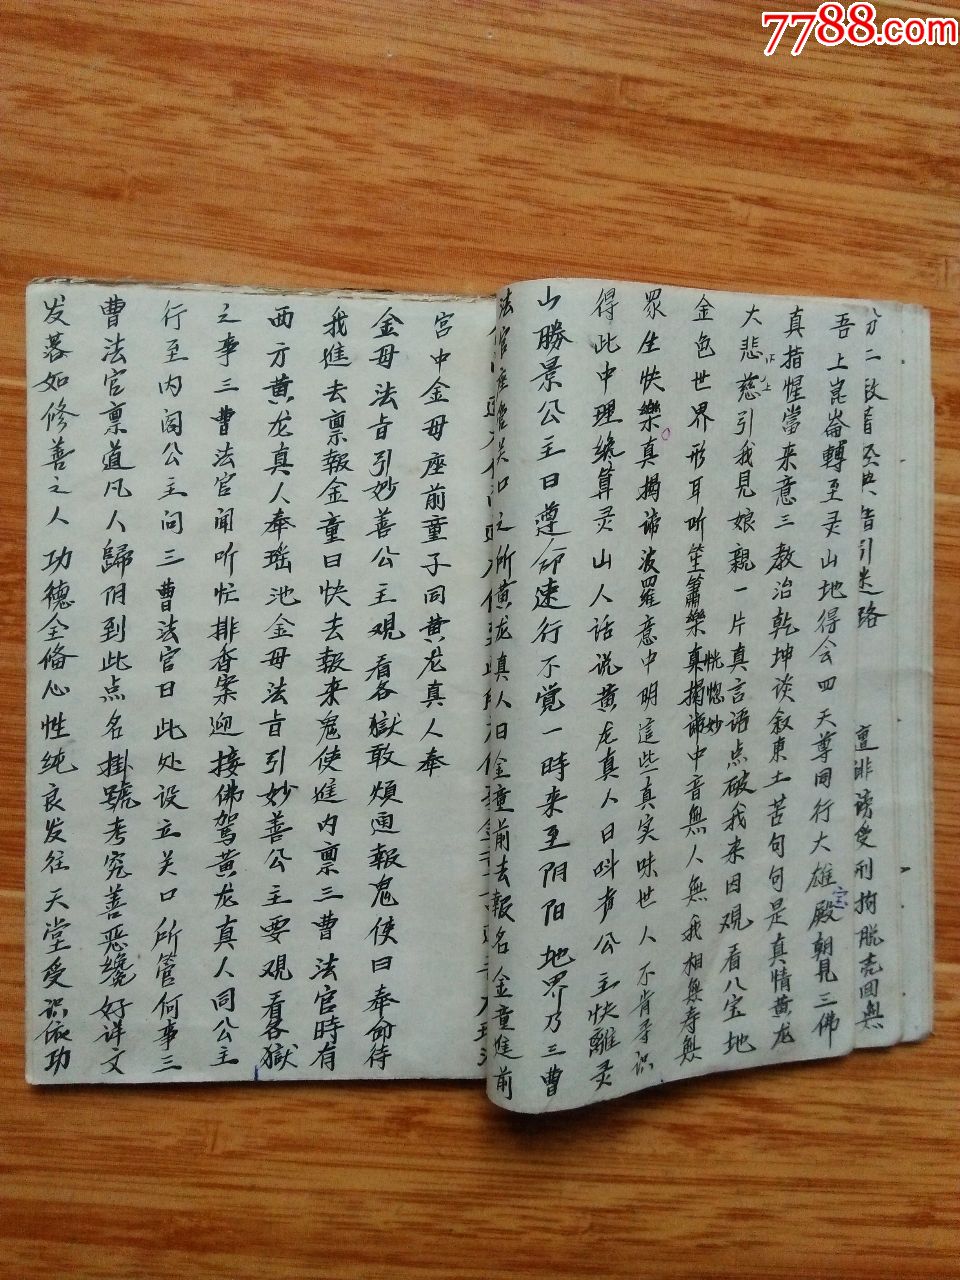 7788.com
吾上崑崙轉至灵山地得会四天尊同行大雄殿朝見三佛
宝
真指惺當来意三教治乾坤谈叙東土苦句句是真情黄龙
大悲慈引我見娘親一片真言語点破我来因观看八宝地
金色世界形耳听笙簫樂真揭谛中音無人無我相無寿無
恍惚妙
眾生快樂真揭谛波羅意中明這些真实味世人不肯寻识
得此中理總算灵山人话说黄龙真人曰叫声公主快離灵
山勝景公主曰遵命速行不觉一時来至阴阳地界乃三曹
法官座 关口之所黄龙真人曰金童前去報名金童進前
宫中金母座前童子同黄龙真人奉
金母法旨引妙善公主观看各獄敢煩通報鬼使曰奉命待
我進去禀報金童曰快去報来鬼使進内禀三曹法官時有
西方黄龙真人奉瑶池金母法旨引妙善公主要观看各獄
之事三曹法官闻听忙排香案迎接佛驾黄龙真人同公主
行至内阁公主问三曹法官曰此处设立关口所管何事三
曹法官禀道凡人歸阴到此点名掛號考究善恶纔好详文
发落如修善之人功德全偹心性纯良发往天堂受 依功